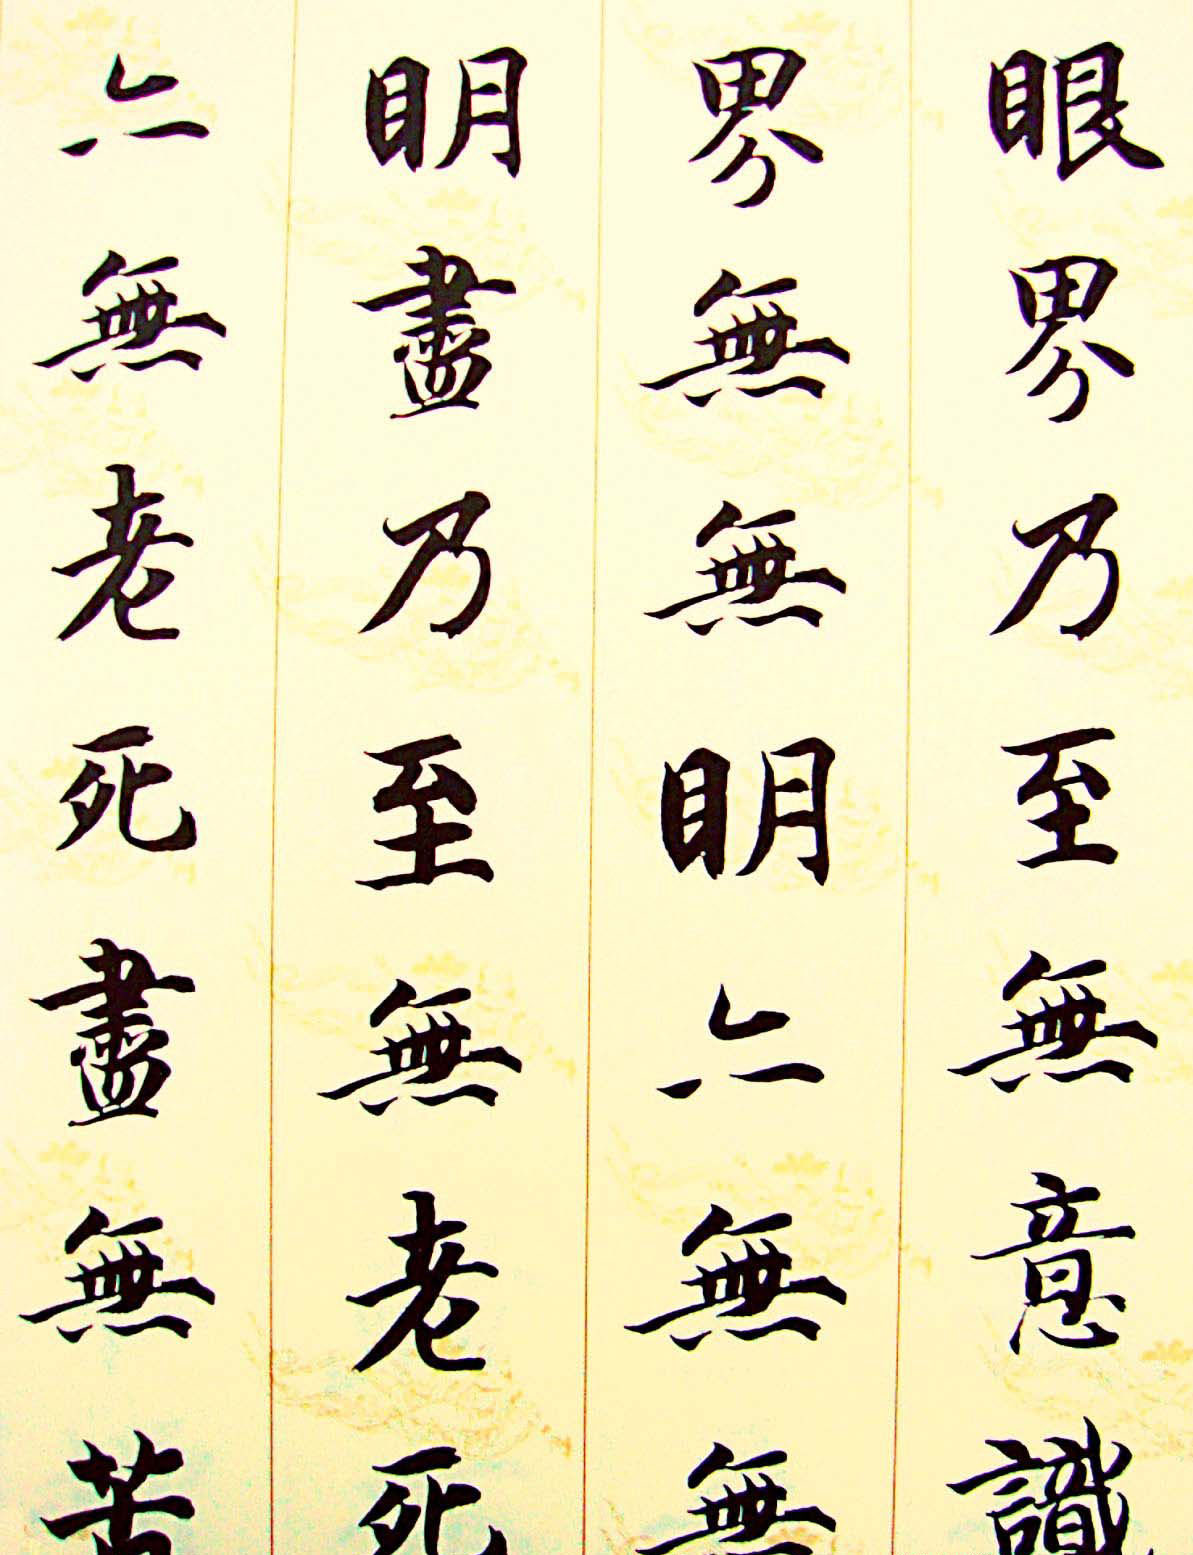 眼界乃至無意識
界無無眀亦無無
眀盡乃至無老死
亦無老死盡無苦